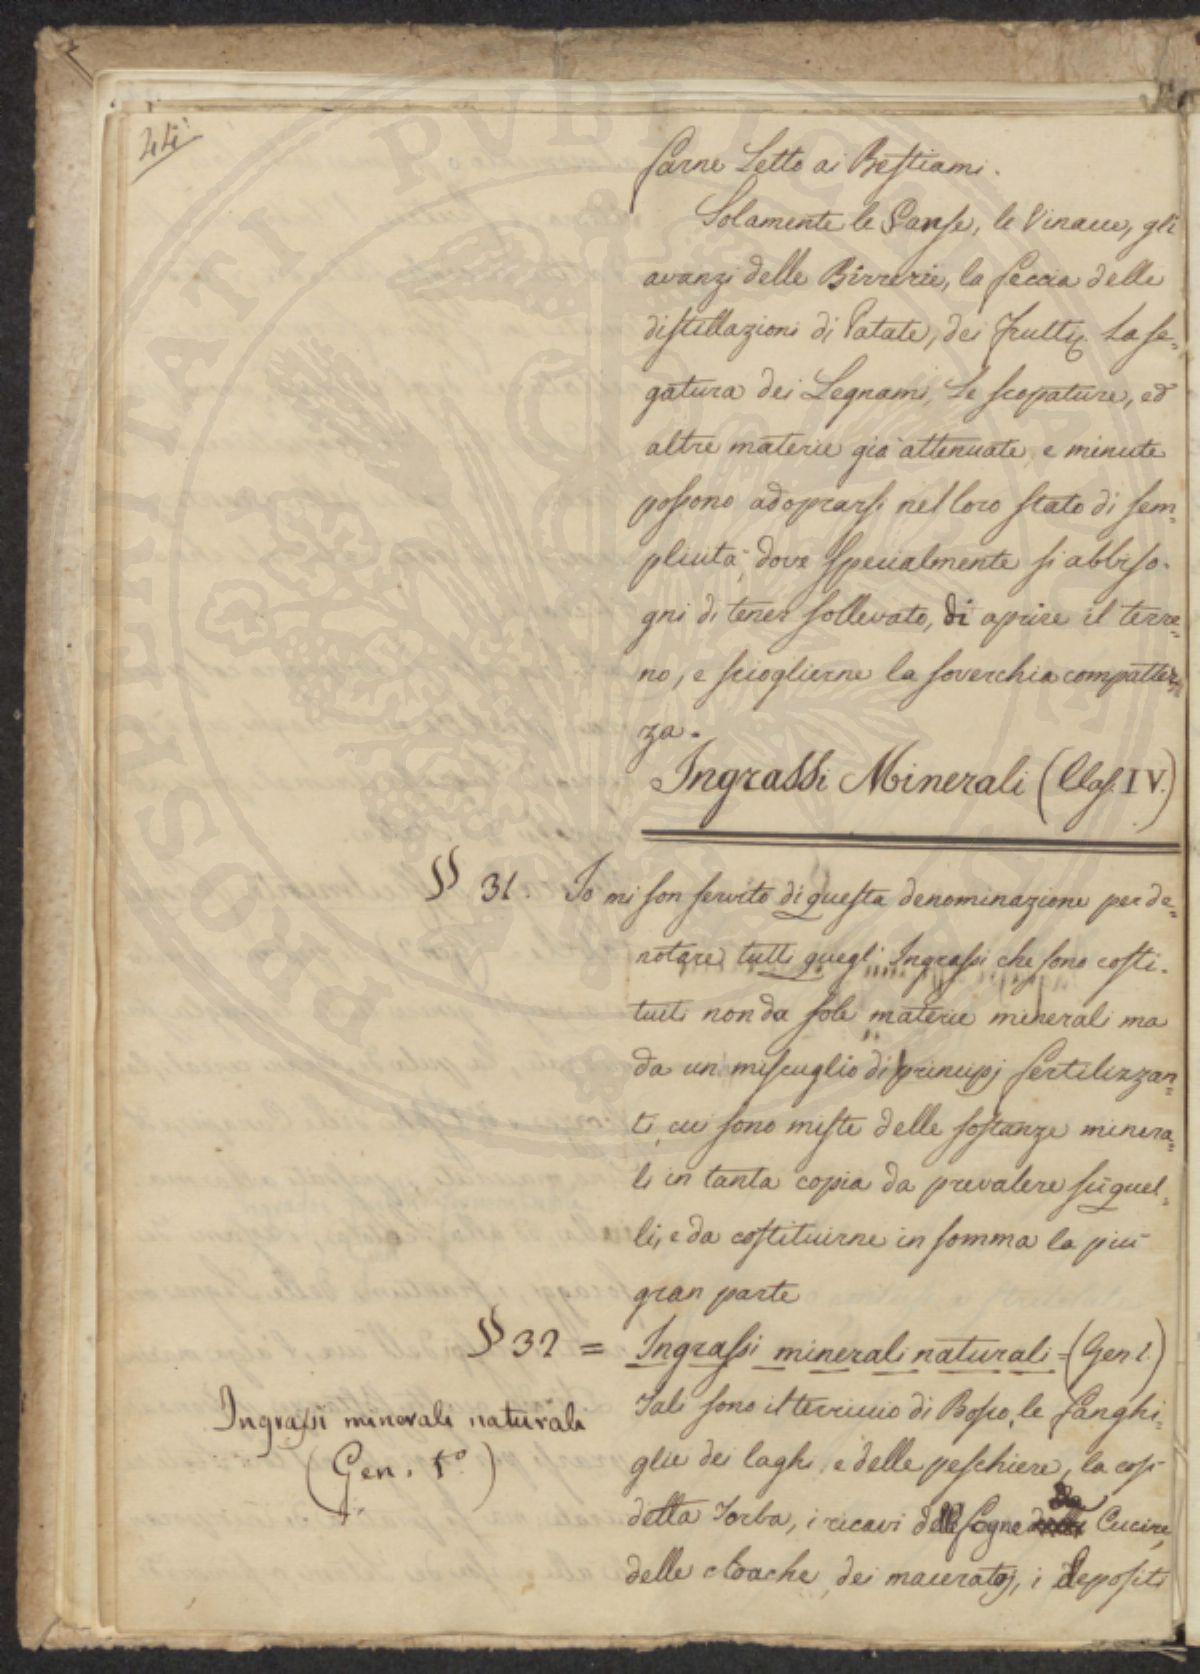 44
farne Letto ai Bestiami.
Solamente le Sanse, le Vinacce, gli
avanzi delle Birrerie, la feccia delle
distillazioni di Patate, dei frutti, La se-
gatura dei Legnami, Le scopature, ed
altre materie già attenuate e minute
possono adoprarsi nel loro stato di sem-
plicità, dove specialmente si abbiso-
gni di tener sollevato, di aprire il terre-
no, e scioglierne la soverchia compattez-
za.
Ingrassi Minerali (Clas. IV.)
§§ 31. Io mi son servito di questa denominazione per de-
notare tutti quegl' Ingrassi che sono costi-
tuiti non da sole materie minerali ma
da un miscuglio di principj fertilizzan-
ti, cui sono miste delle sostanze minera-
li in tanta copia da prevalere su quel-
li, e da costituirne in somma la più
gran parte
§§ 32 = Ingrassi minerali naturali = (Gen 1.)
Ingrassi minerali naturali
(Gen. 1°)
Tali sono il terriccio di Bosco, le fanghi-
glie dei laghi, e delle peschiere, la così
detta Torba, i ricavi delle fogne da Cucine,
delle cloache, dei maceratoj, i depositi